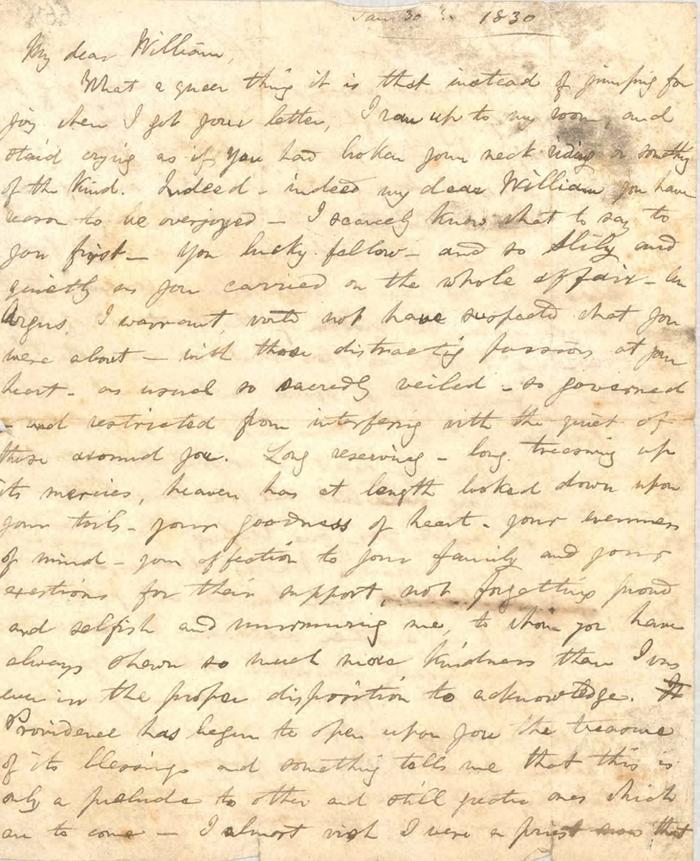 Jan 30th 1830
My dear William,
What a queer thing it is that instead of jumping for
joy when I got your letter, I ran up to my room, and
staid crying as if you had broken your neck riding or somthg
of the kind. Indeed - indeed my dear William you have
reason to be overjoyed - I scarcely know what to say to
you first - you lucky fellow - and so slily and
quietly as you carried on the whole affair - An
Argus, I warrant, would not have suspected what you
were about - with those distracting passions at your
heart - as usual so sacredly veiled - so governed
- and restricted from interfering with the quiet of
those around you. Long reserving - long treasuring up
its mercies, heaven has at length looked down upon
your toils - your goodness of heart - your evenness
of mind - your affection to your family and your
exertions for their support, not forgetting proud
and selfish and murmuring me, to whom you have
always shewn so much more kindness than I was
ever in the proper disposition to acknowledge. It
Providence has begun to open upon you the treasure
of its blessings and something tells me that this is
only a prelude to other and still greater ones which
are to come - I almost wish I were a priest now that